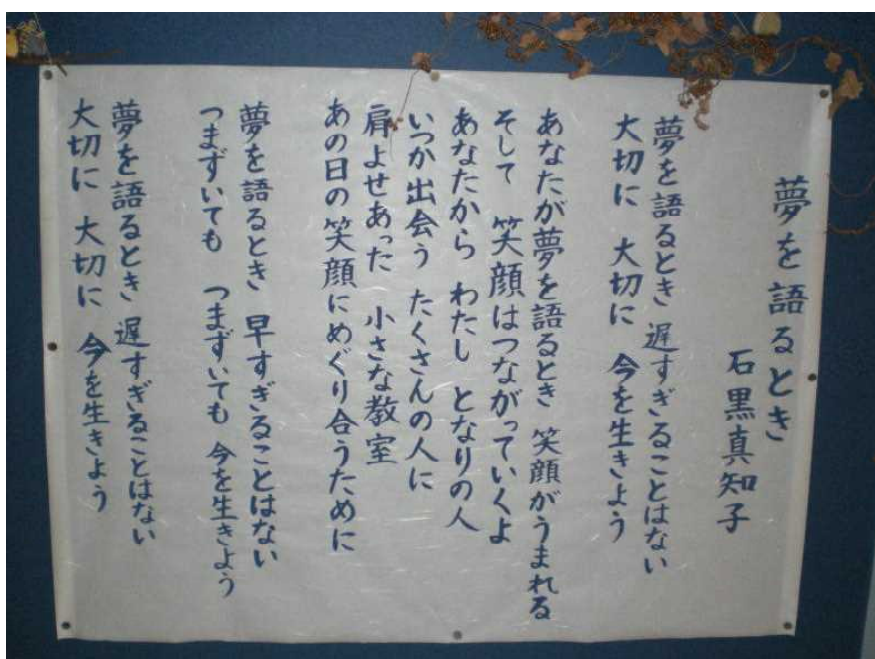 夢を語るとき
石黒真知子
夢を語るとき 遅すぎることはない
大切に 大切に 今を生きよう
あなたが夢を語るとき 笑顔がうまれる
そして 笑顔はつながっていくよ
あなたから わたし となりの人
いつか出会う たくさんの人に
肩よせあった 小さな教室
あの日の笑顔にめぐり合うために
夢を語るとき 早すぎることはない
つまずいても つまずいても 今を生きよう
夢を語るとき 遅すぎることはない
大切に 大切に 今を生きよう